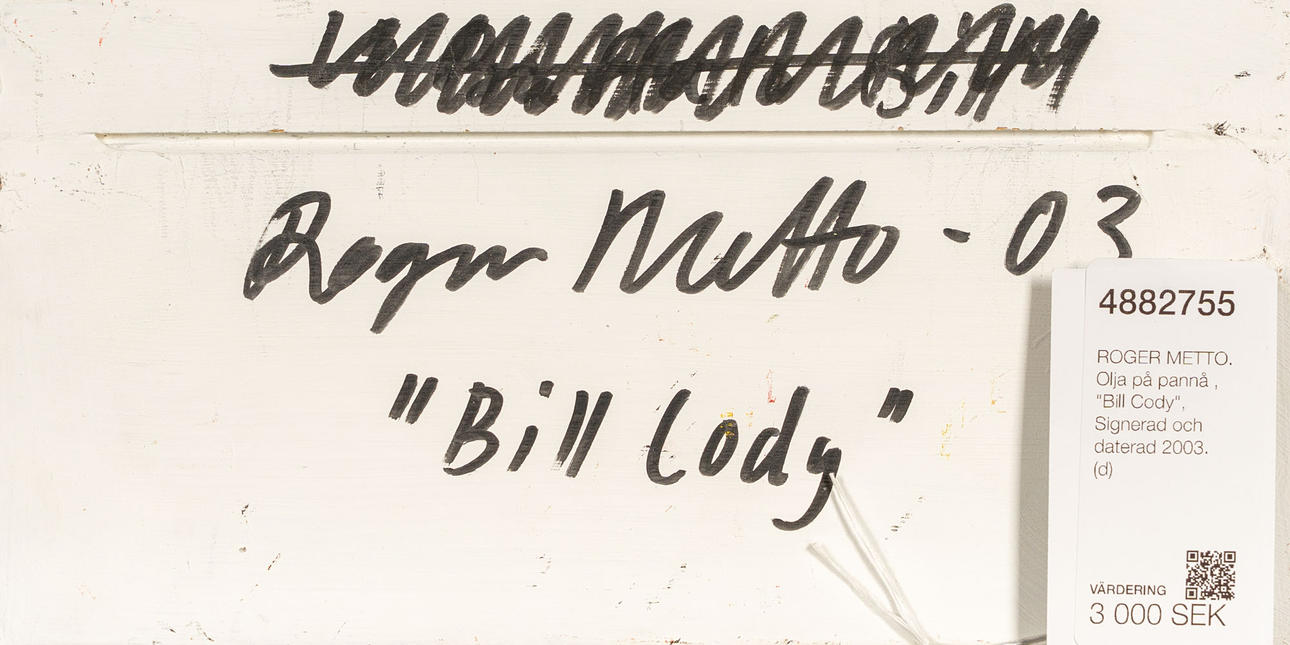 Bill
Roger Metto - 03
"Bill Cody"
4882755
ROGER METTO.
Olja på pannå ,
"Bill Cody",
Signerad och
daterad 2003.
(d)
VÄRDERING
3 000 SEK